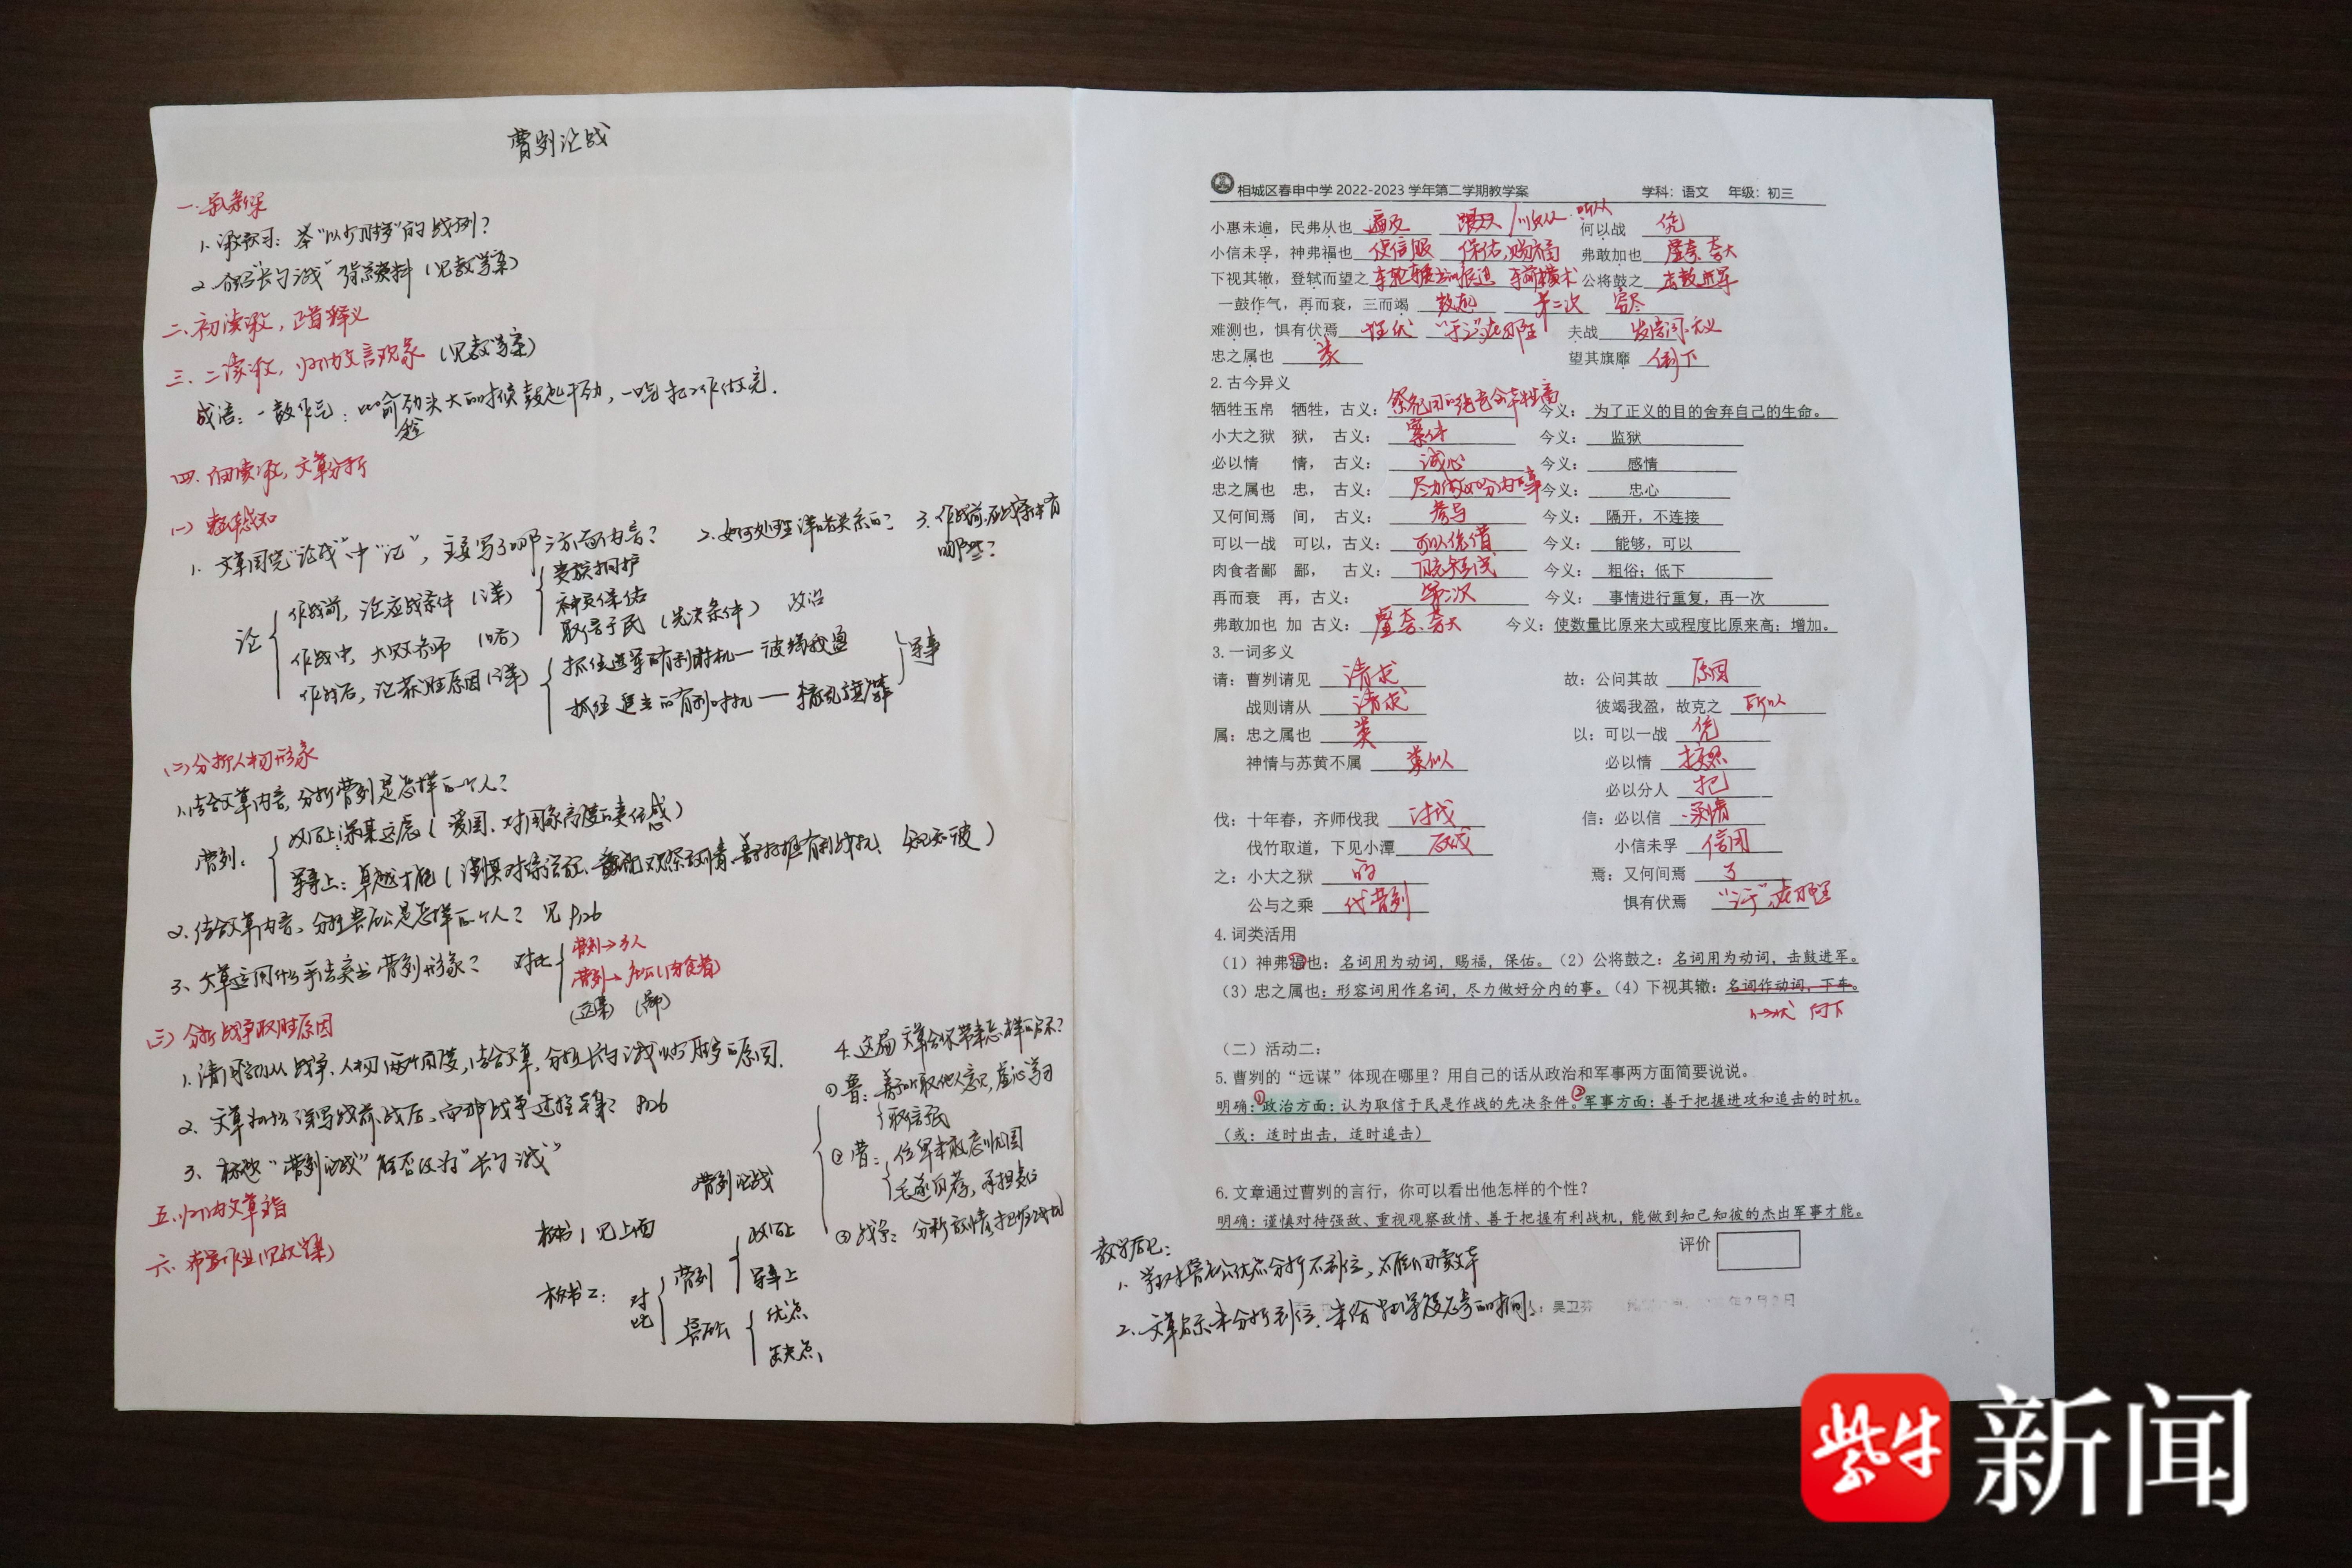 曹刿论战
一. 导入新课
1. 举"以少胜多"的战例?
2. 介绍"长勺之战"背景资料(见教学案)
二、初读课文,正音释义
三、二读课文,归纳文言现象(见教学案)
成语:一鼓作气:比喻趁劲头大的时候鼓起干劲,一口气把工作做完.
四. 细读课文,文章分析
(一) 整体感知
1. 文章围绕"论战"中"论",主要写了哪三方面内容? 2. 如何处理详略关系的? 3. 作战前,应战条件有哪些?
论
作战前,论应战条件(详)
贵族拥护
神灵保佑
取信于民(先决条件) 政治
作战中,大败齐师(略)
作战后,论获胜原因(详)
抓住进军有利时机—彼竭我盈
抓住追击的有利时机—辙乱旗靡
军事
(二)分析人物形象
1. 结合文章内容,分析曹刿是怎样的一个人?
曹刿:
政治上:深谋远虑(爱国、对国家高度的责任感)
军事上:卓越才能
2. 结合文章内容,分析鲁庄公是怎样的一个人? 见P126
3、文章运用什么手法突出曹刿形象? 对比
曹刿→乡人
曹刿→庄公(肉食者)
(远谋) (鄙)
(三) 分析战争取胜原因
1. 请同学们从战争、人物两个角度,结合文章,分析长勺之战以少胜多的原因.
2. 文章为什么详写战前、战后、而对战争 P126
3、标题"曹刿论战"能否改为"长勺之战"
4. 这篇文章给你带来怎样的启示?
①鲁:善于听取他人意见,虚心学习
取信于民
②曹:位卑未敢忘忧国
毛遂自荐、承担责任
③战争:分析敌情,把握战机
五. 归纳文章主旨
六. 布置作业(见教学案)
曹刿论战
板书1:见上面
板书2:
对比
曹刿
政治上
军事上
鲁庄公
优点
缺点
相城区春申中学 2022-2023 学年第二学期教学案 学科:语文 年级:初三
小惠未遍,民弗从也 遍及 跟从 听从 何以战 凭
小信未孚,神弗福也 使信服 保佑,赐福 弗敢加也 虚夸、夸大
下视其辙,登轼而望之 车轮碾出的痕迹 车前横木 公将鼓之 击鼓进军
一鼓作气,再而衰,三而竭 鼓起 第二次 穷尽
难测也,惧有伏焉 埋伏 "于之"在那里 夫战 发语词,无义
忠之属也 类 望其旗靡 倒下
2.古今异义
牺牲玉帛 牺牲,古义: 祭祀用的纯色全体牲畜 今义: 为了正义的目的舍弃自己的生命。
小大之狱 狱, 古义: 案件 今义: 监狱
必以情 情, 古义: 诚心 今义: 感情
忠之属也 忠, 古义: 尽力做好分内的事 今义: 忠心
又何间焉 间, 古义: 参与 今义: 隔开,不连接
可以一战 可以,古义: 可以凭借 今义: 能够,可以
肉食者鄙 鄙, 古义: 目光短浅 今义: 粗俗;低下
再而衰 再,古义: 第二次 今义: 事情进行重复,再一次
弗敢加也 加 古义: 虚夸、夸大 今义:使数量比原来大或程度比原来高;增加。
3.一词多义
请:曹刿请见 请求 故:公问其故 原因
战则请从 请求 彼竭我盈,故克之 所以
属:忠之属也 类 以:可以一战 凭
神情与苏黄不属 类似 必以情 按照
必以分人 把
伐:十年春,齐师伐我 讨伐 信:必以信 实情
伐竹取道,下见小潭 砍伐 小信未孚 信用
之:小大之狱 的 焉:又何间焉 了
公与之乘 代曹刿 惧有伏焉 "于之",在那里
4.词类活用
(1)神弗福也:名词用为动词,赐福,保佑。(2)公将鼓之:名词用为动词,击鼓进军。
(3)忠之属也:形容词用作名词,尽力做好分内的事。(4)下视其辙:名词作动词,下车。
n→状 向下
(二)活动二:
5.曹刿的"远谋"体现在哪里?用自己的话从政治和军事两方面简要说说。
明确:①政治方面:认为取信于民是作战的先决条件。②军事方面:善于把握进攻和追击的时机。
(或:适时出击,适时追击)
6.文章通过曹刿的言行,你可以看出他怎样的个性?
明确:谨慎对待强敌、重视观察敌情、善于把握有利战机,能做到知己知彼的杰出军事才能。
评价
教学后记:
1. 学生对鲁庄公优点分析不到位,不能细读文本
2. 文章启示未分析到位
吴卫芬
紫牛新闻